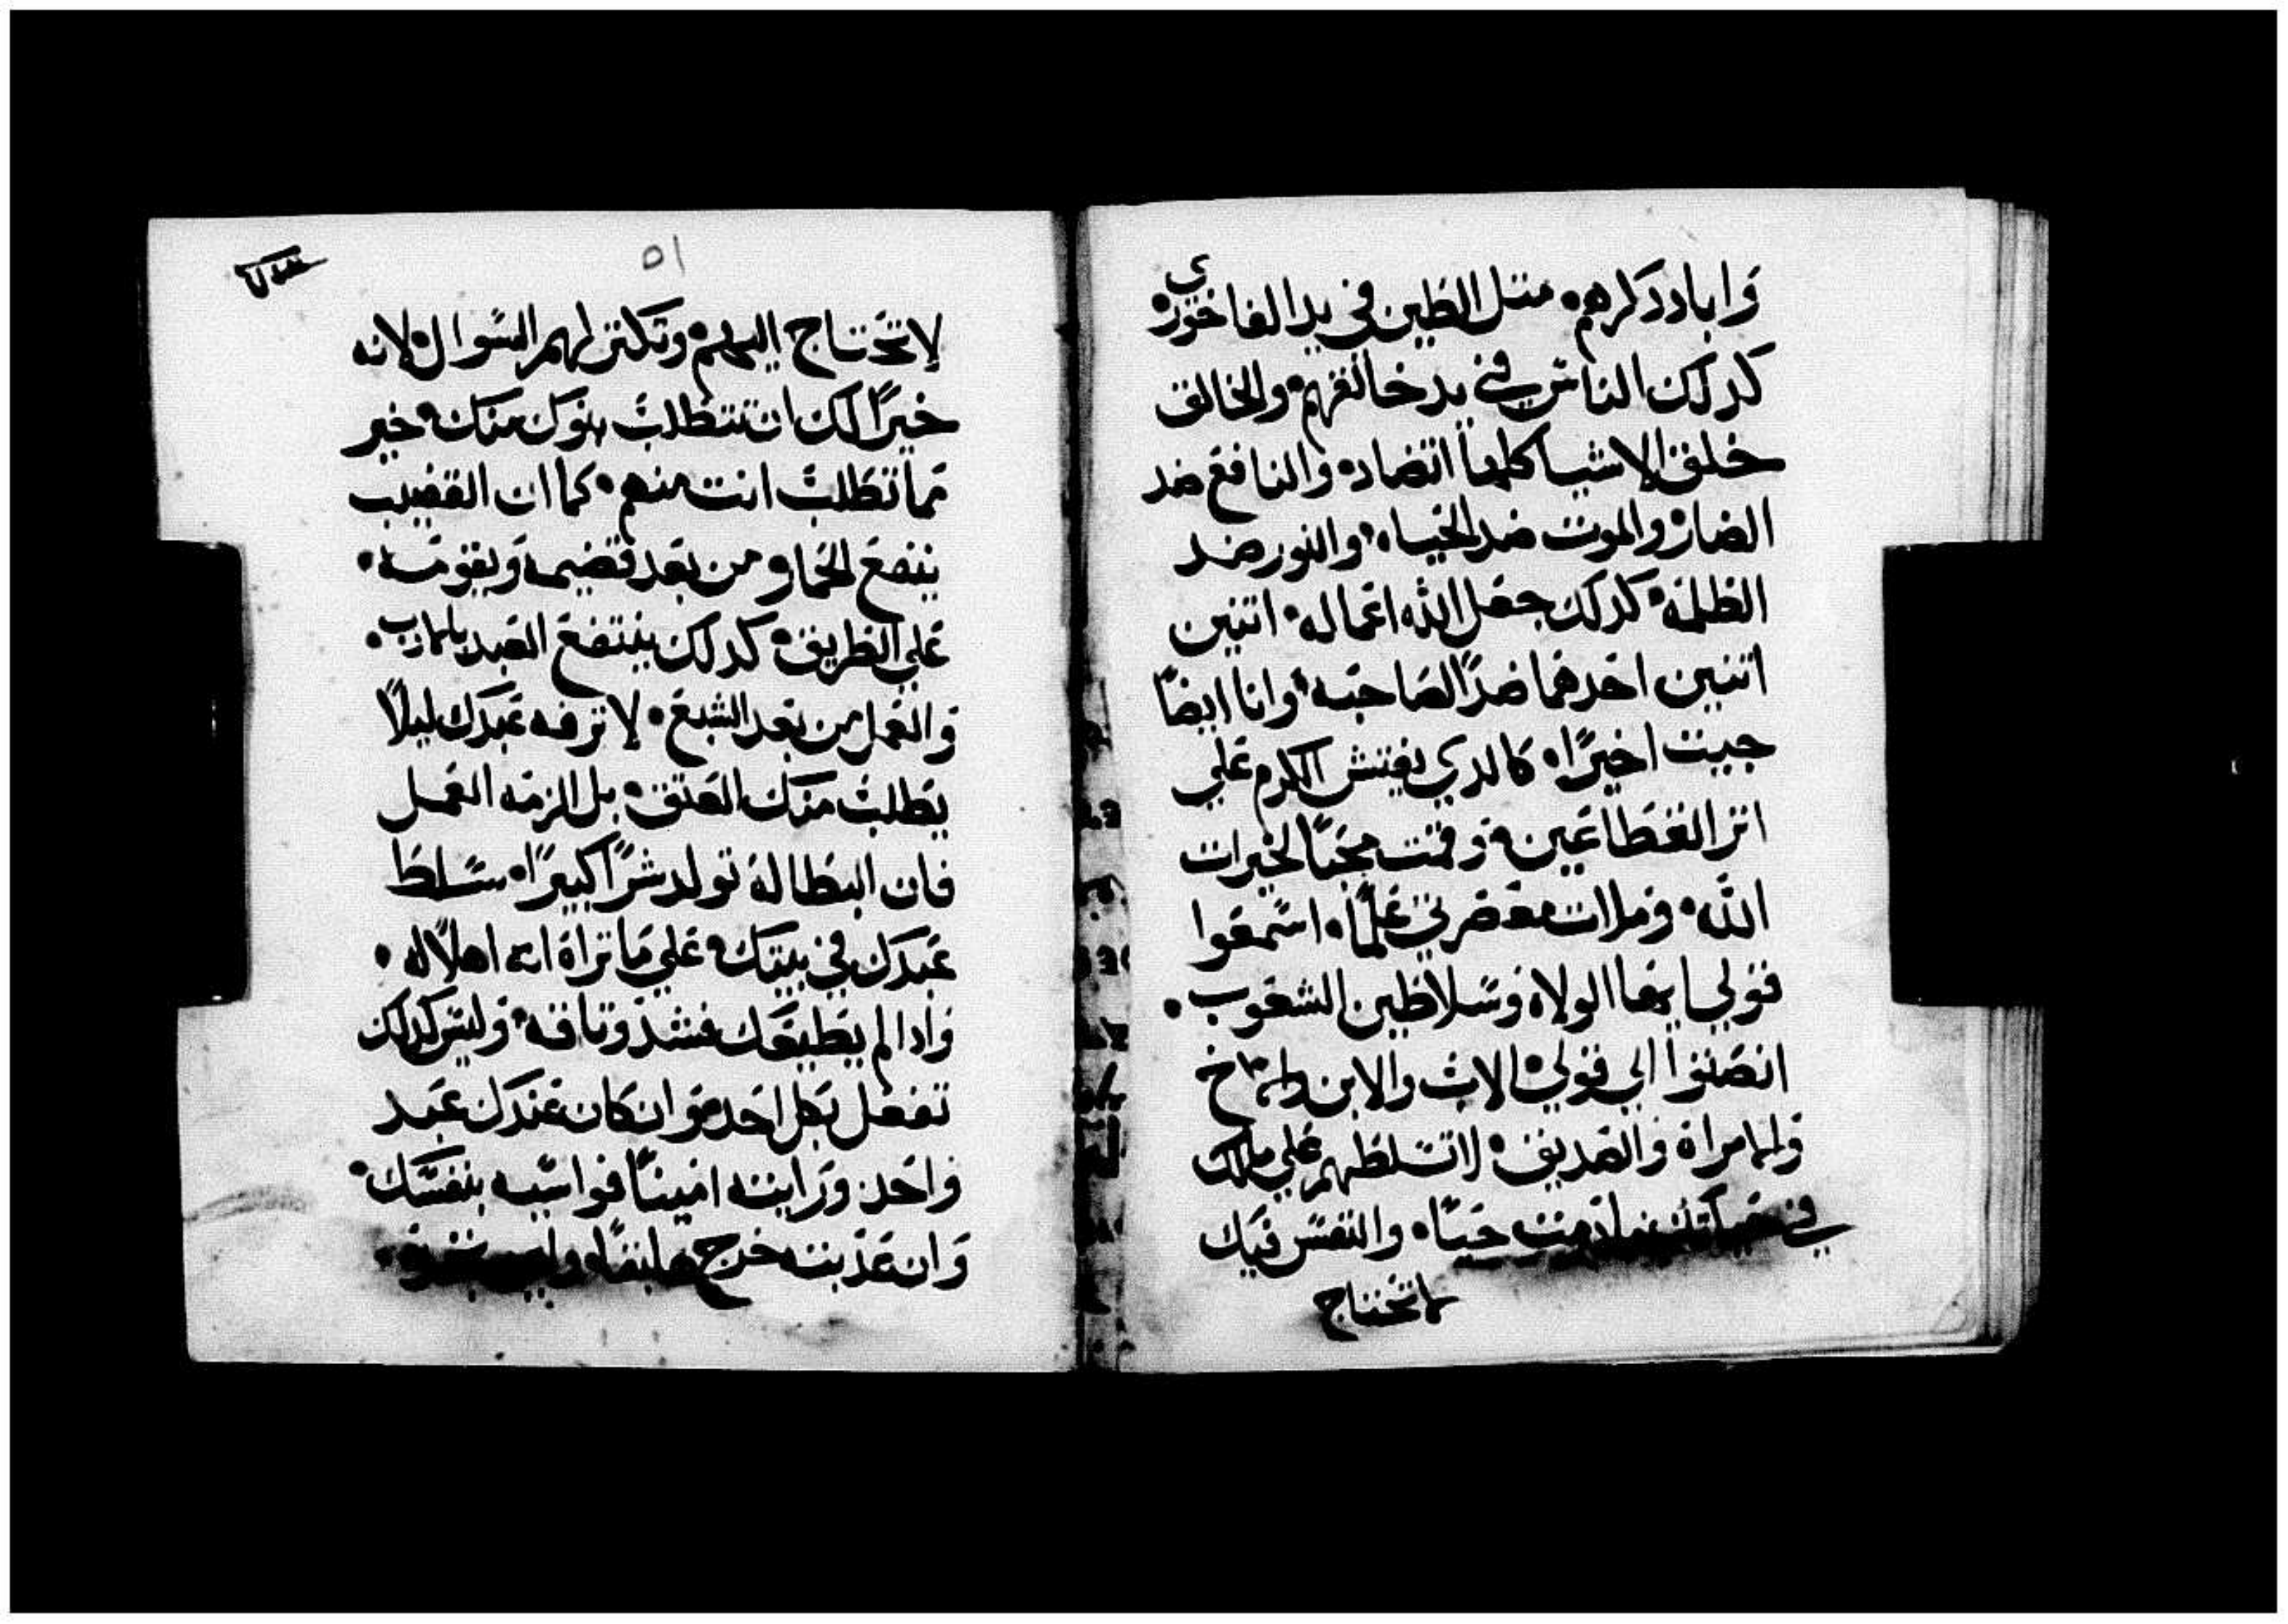 وابادذكرهم • متل الطين في يد الفاخوري
كدلك الناس في يد خالقهم • والخالق
خلق الاشيا كلها اتضاد • والنافع ضد
الضار • والموت ضد الحياه • والنور ضد
الظلمه • كدلك جعل الله اعماله • اتنين
اتنين احدهما ضدًا لصاحبه • وانا ايضًا
جيت اخيرًا • كالدي يفتش الكرم علي
اتر القطاعين • وقمت محبًا لخيرات
الله • وملات معصرتي علمًا • اسمعوا
قولي ايها الولاه وسلاطين الشعوب •
انصتوا الي قولي • الاب والابن والاخ
والامراة والصديق • لا تسلطهم علي ملكك
في حياتك مادمت حيًا • والنفس فيك
لاتحتاج
٥١
لاتحتاج اليهم • وتكتر لهم السوال • لانه
خيرًا لك ان تتطلب بنوك منك • خير
مما تطلب انت منهم • كما ان القضيب
ينفع الحمار من بعد قضيمه ويقومه •
علي الطريق • كدلك ينتفع العبد بالادب •
والعمل من بعد الشبع • لا ترفه عبدك ليلًا
يطلب منك العتق • بل الزمه العمل
فان البطاله تولد شرًا كبيرًا • سلط
عبدك في بيتك • علي ما تراه انه اهلًا له •
وادا لم يطيعك فشد وتاقه • وليس كدلك
تفعل بكل احد • وان كان عندك عبد
واحد ورايته امينًا فواسيه بنفسك •
وان عذبته خرج